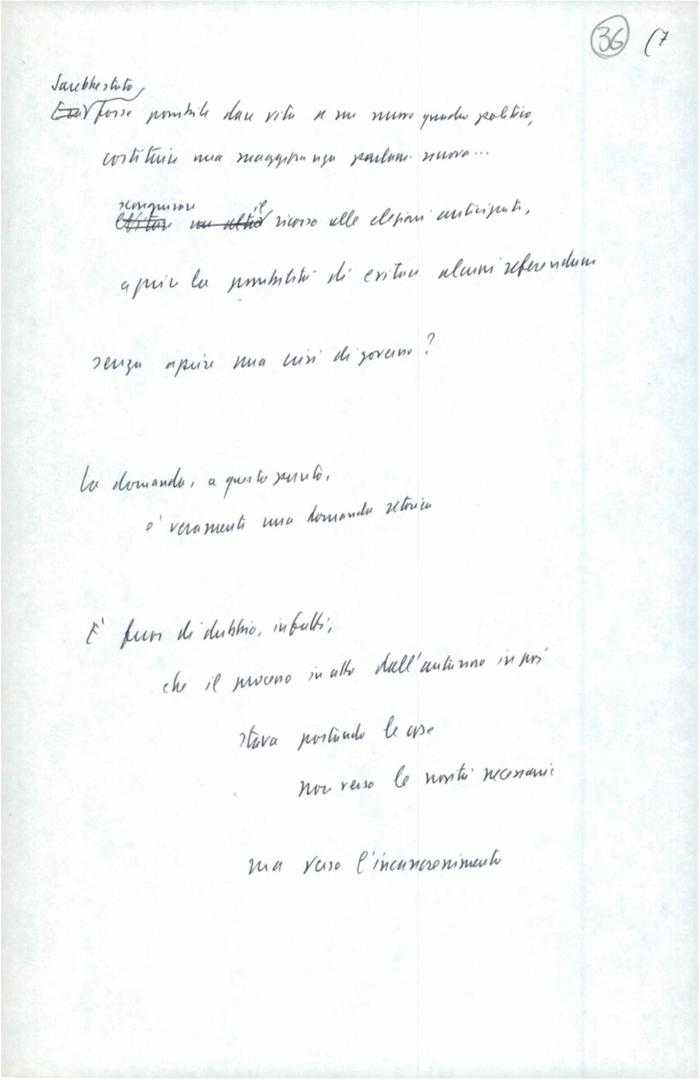 36 (7
Sarebbe stato,
Era forse possibile dare vita a un nuovo quadro politico,
costituire una maggioranza parlam. nuova...
scongiurare il
Evitare un altro ricorso alle elezioni anticipate,
aprire la possibilità di evitare alcuni referendum
senza aprire una crisi di governo?
La domanda, a questo punto,
e' veramente una domanda retorica
E' fuori di dubbio, infatti,
che il processo in atto dall'autunno in poi
stava portando le cose
non verso le novità necessarie
ma verso l'incancrenimento